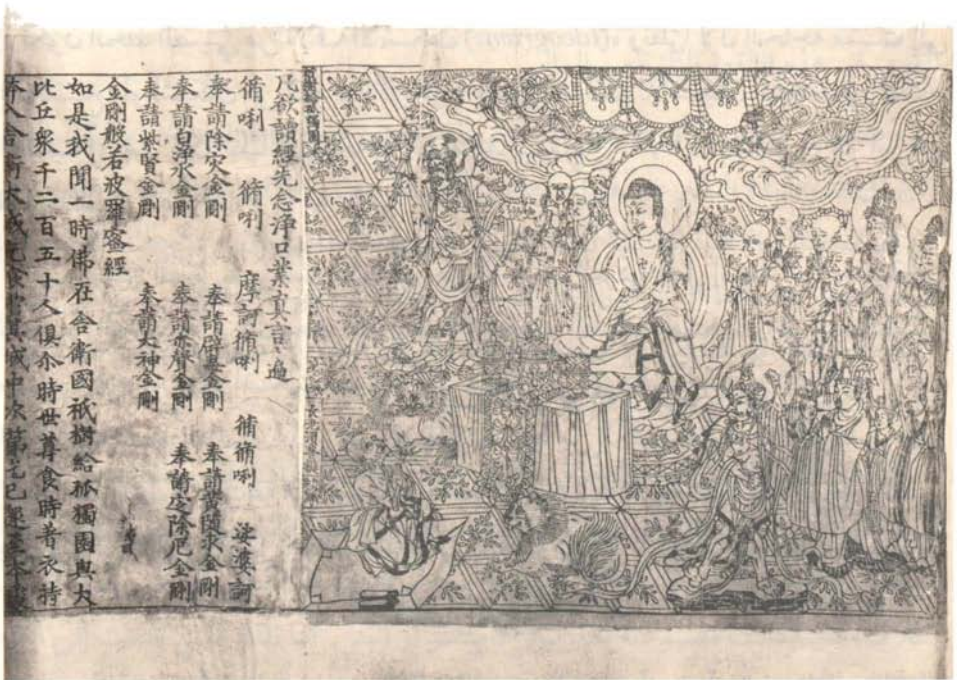 祇樹給孤獨園
長老須菩提
凡欲讀經先念淨口業真言一遍
脩唎 脩唎 摩訶脩唎 脩脩唎 娑婆訶
奉請除灾金剛 奉請辟毒金剛 奉請黃隨求金剛
奉請白淨水金剛 奉請赤聲金剛 奉請定除厄金剛
奉請紫賢金剛 奉請大神金剛
金剛般若波羅蜜經
如是我聞一時佛在舍衛國祇樹給孤獨園與大
比丘衆千二百五十人俱尒時世尊食時著衣持
入舍衛大城乞食於其城中次第乞已還至本